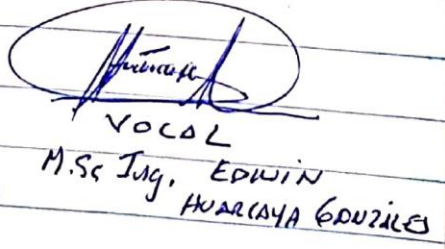 VOCAL
M.Sc Ing. EDWIN
HUARCAYA GONZÁLES